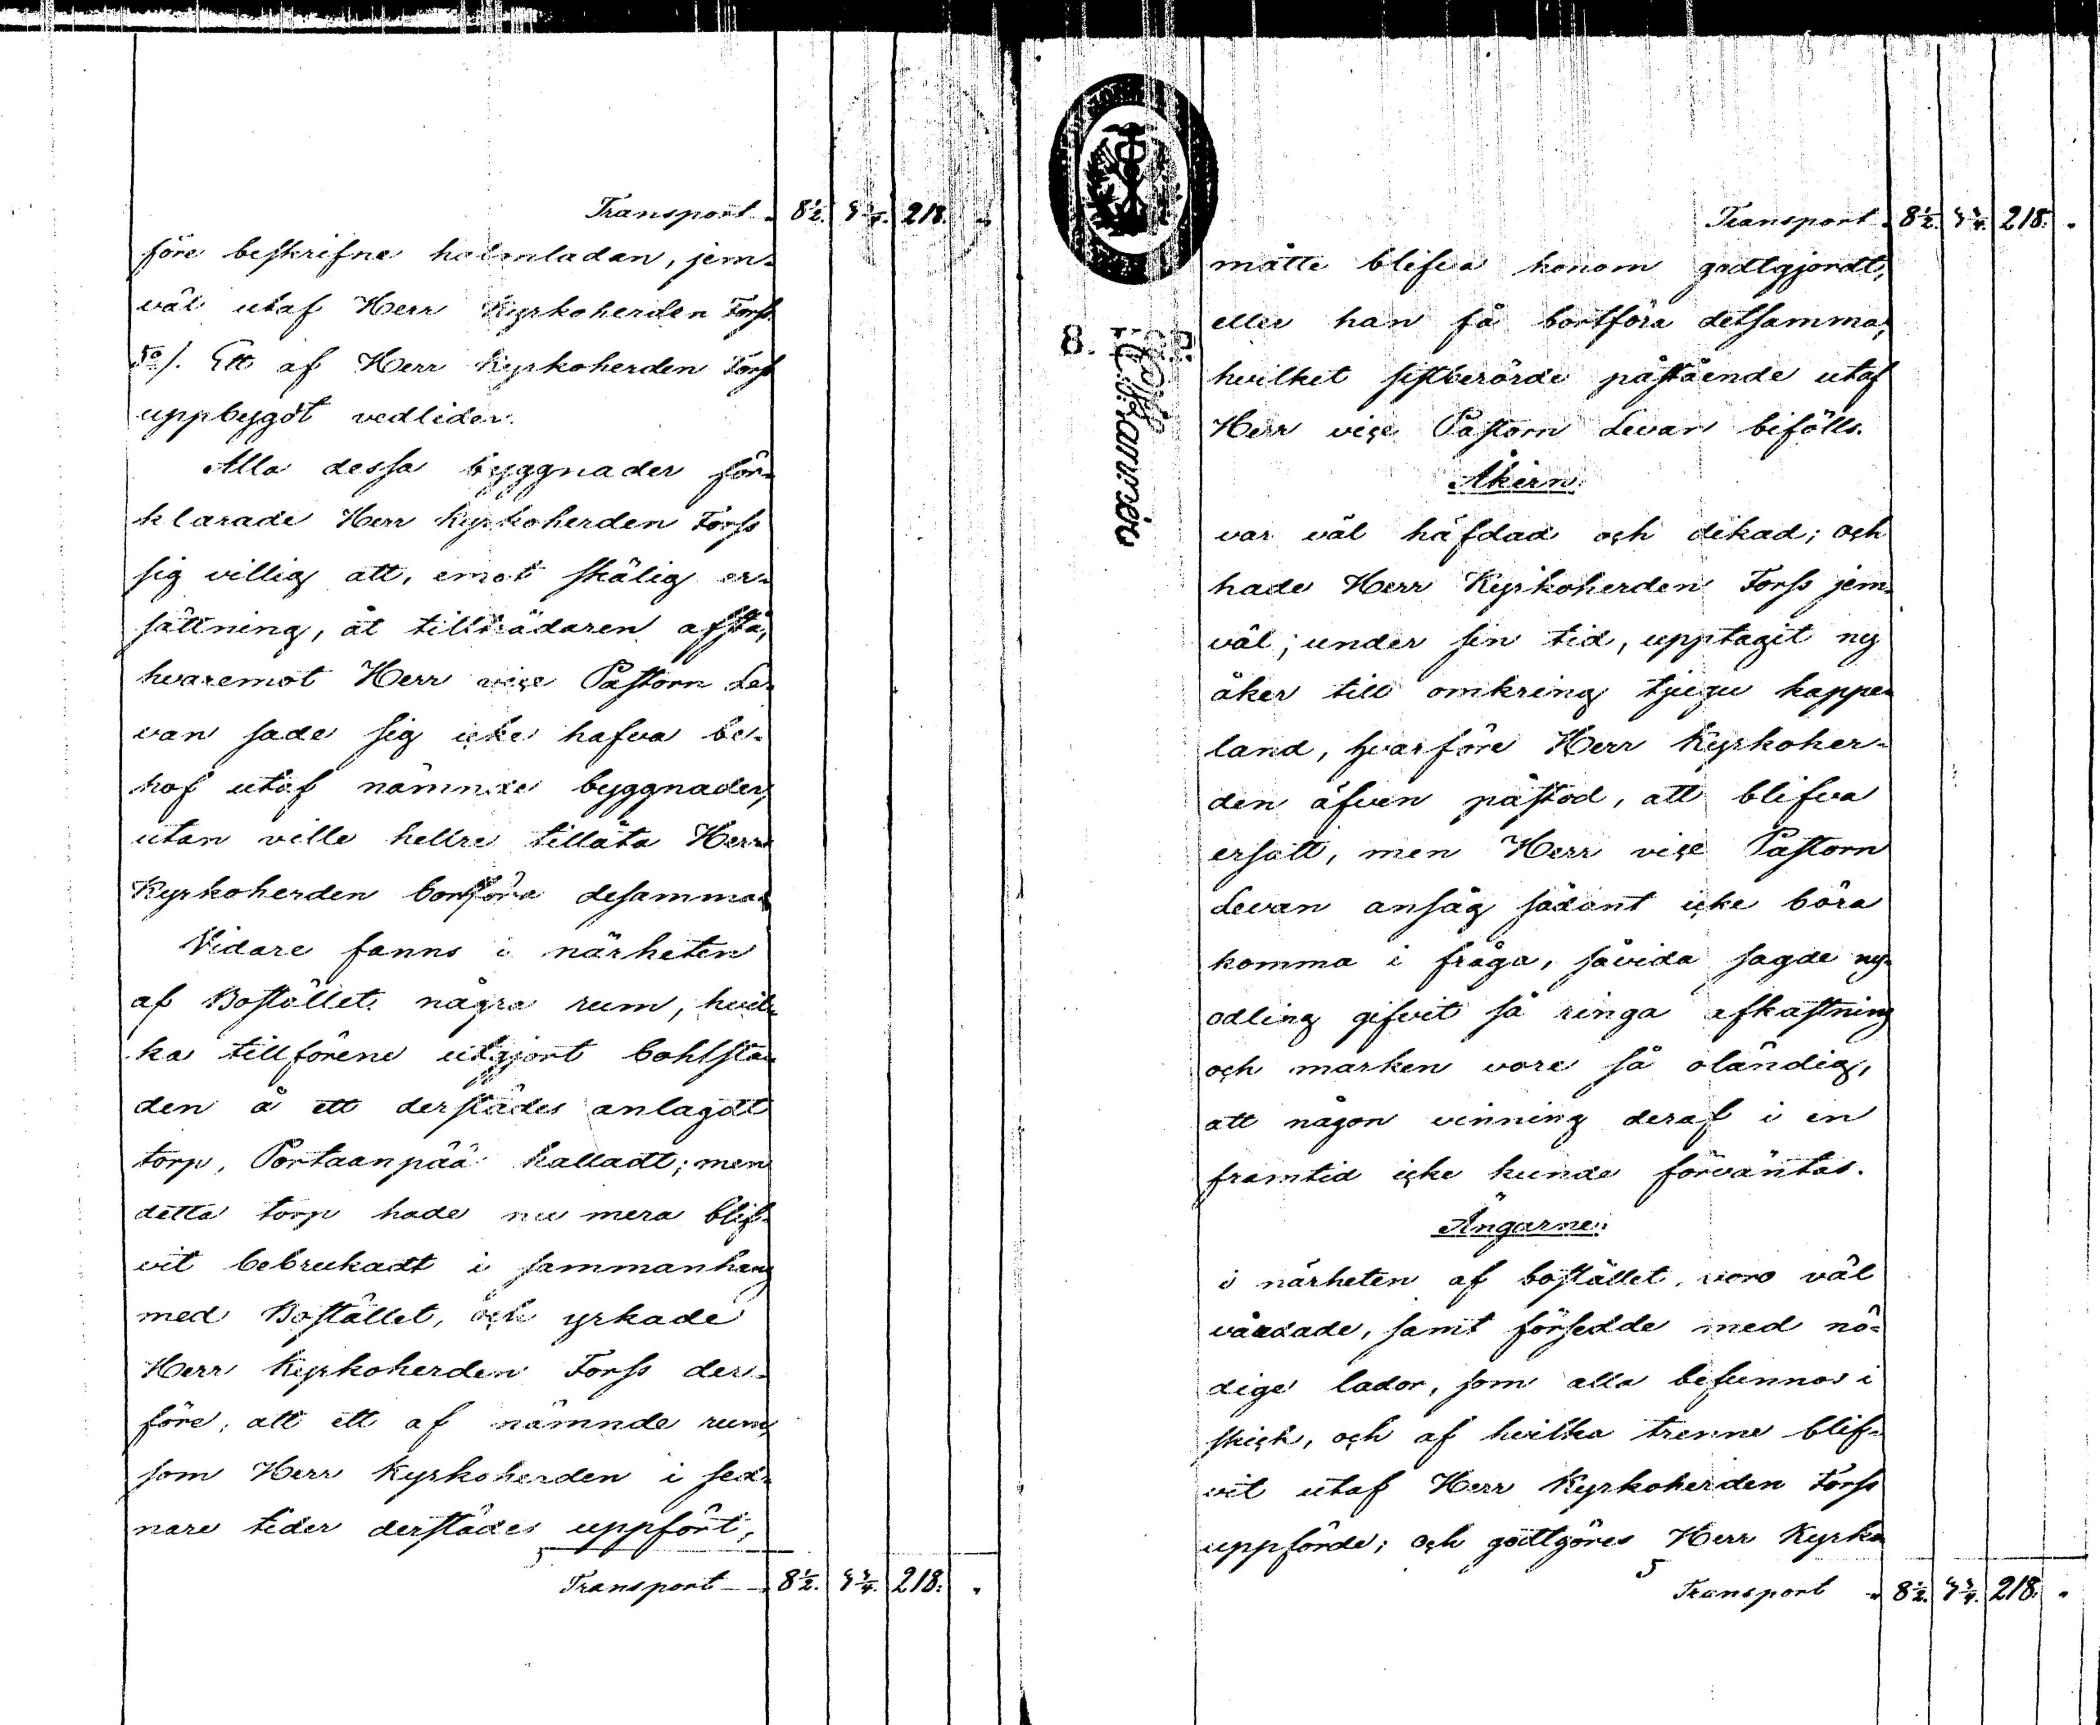 Transport 8½. 9¾. 218. "
före beskrifne halmladan, jem-
väl utaf Herr Kyrkoherden Forss
5o/. Ett af Herr Kyrkoherden Forss
uppbygdt vedlider.
Alla dessa byggnader för-
klarade Herr Kyrkoherden Forss
sig villig att, emot skälig er-
sättning, åt tillträdaren afstå,
hvaremot Herr vice Pastorn Le-
van sade sig icke hafva be-
hof utaf nämnde byggnader,
utan ville hellre tillåta Herr
Kyrkoherden bortföra desamma.
Vidare fanns i närheten
af Bostället några rum, hvil-
ka tillförene utgjort bohlsta-
den å ett derstädes anlagdt
torp, Portaanpää kalladt; men
detta torp hade nu mera blif-
vit bebrukadt i sammanhang
med Bostället, och yrkade
Herr Kyrkoherden Forss der-
före, att ett af nämnde rum,
som Herr Kyrkoherden i sed-
nare tider derstädes uppfört,
Transport 8½. 9¾. 218. "
8.
Transport 8½. 9¾. 218. "
måtte blifva honom godtgjordt,
eller han få bortföra detsamma,
hvilket sistberörde påstående utaf
Herr vice Pastorn Levan bifölls.
Åkern
var väl häfdad och dikad; och
hade Herr Kyrkoherden Forss jem-
väl, under sin tid, upptagit ny
åker till omkring tjugu kappe-
land, hvarföre Herr Kyrkoher-
den äfven påstod, att blifva
ersatt, men Herr vice Pastorn
Levan ansåg sådant icke böra
komma i fråga, såvida sagde ny-
odling gifvit så ringa afkastning
och marken vore så oländig,
att någon vinning deraf i en
framtid icke kunde förväntas.
Ängarne
i närheten af bostället, voro väl
vårdade, samt försedde med nö-
dige lador, som alla befunnos i
skick, och af hvilka trenne blif-
vit utaf Herr Kyrkoherden Forss
uppförde; och godtgöres Herr Kyrko
Transport 8½. 9¾. 218. "